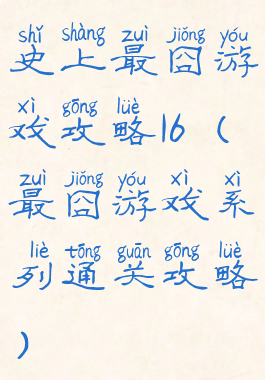 shǐ shàng zuì jiǒng yóu
史上最囧游
xì gōng lüè
戏攻略16（
zuì jiǒng yóu xì xì
最囧游戏系
liè tōng guān gōng lüè
列通关攻略
）